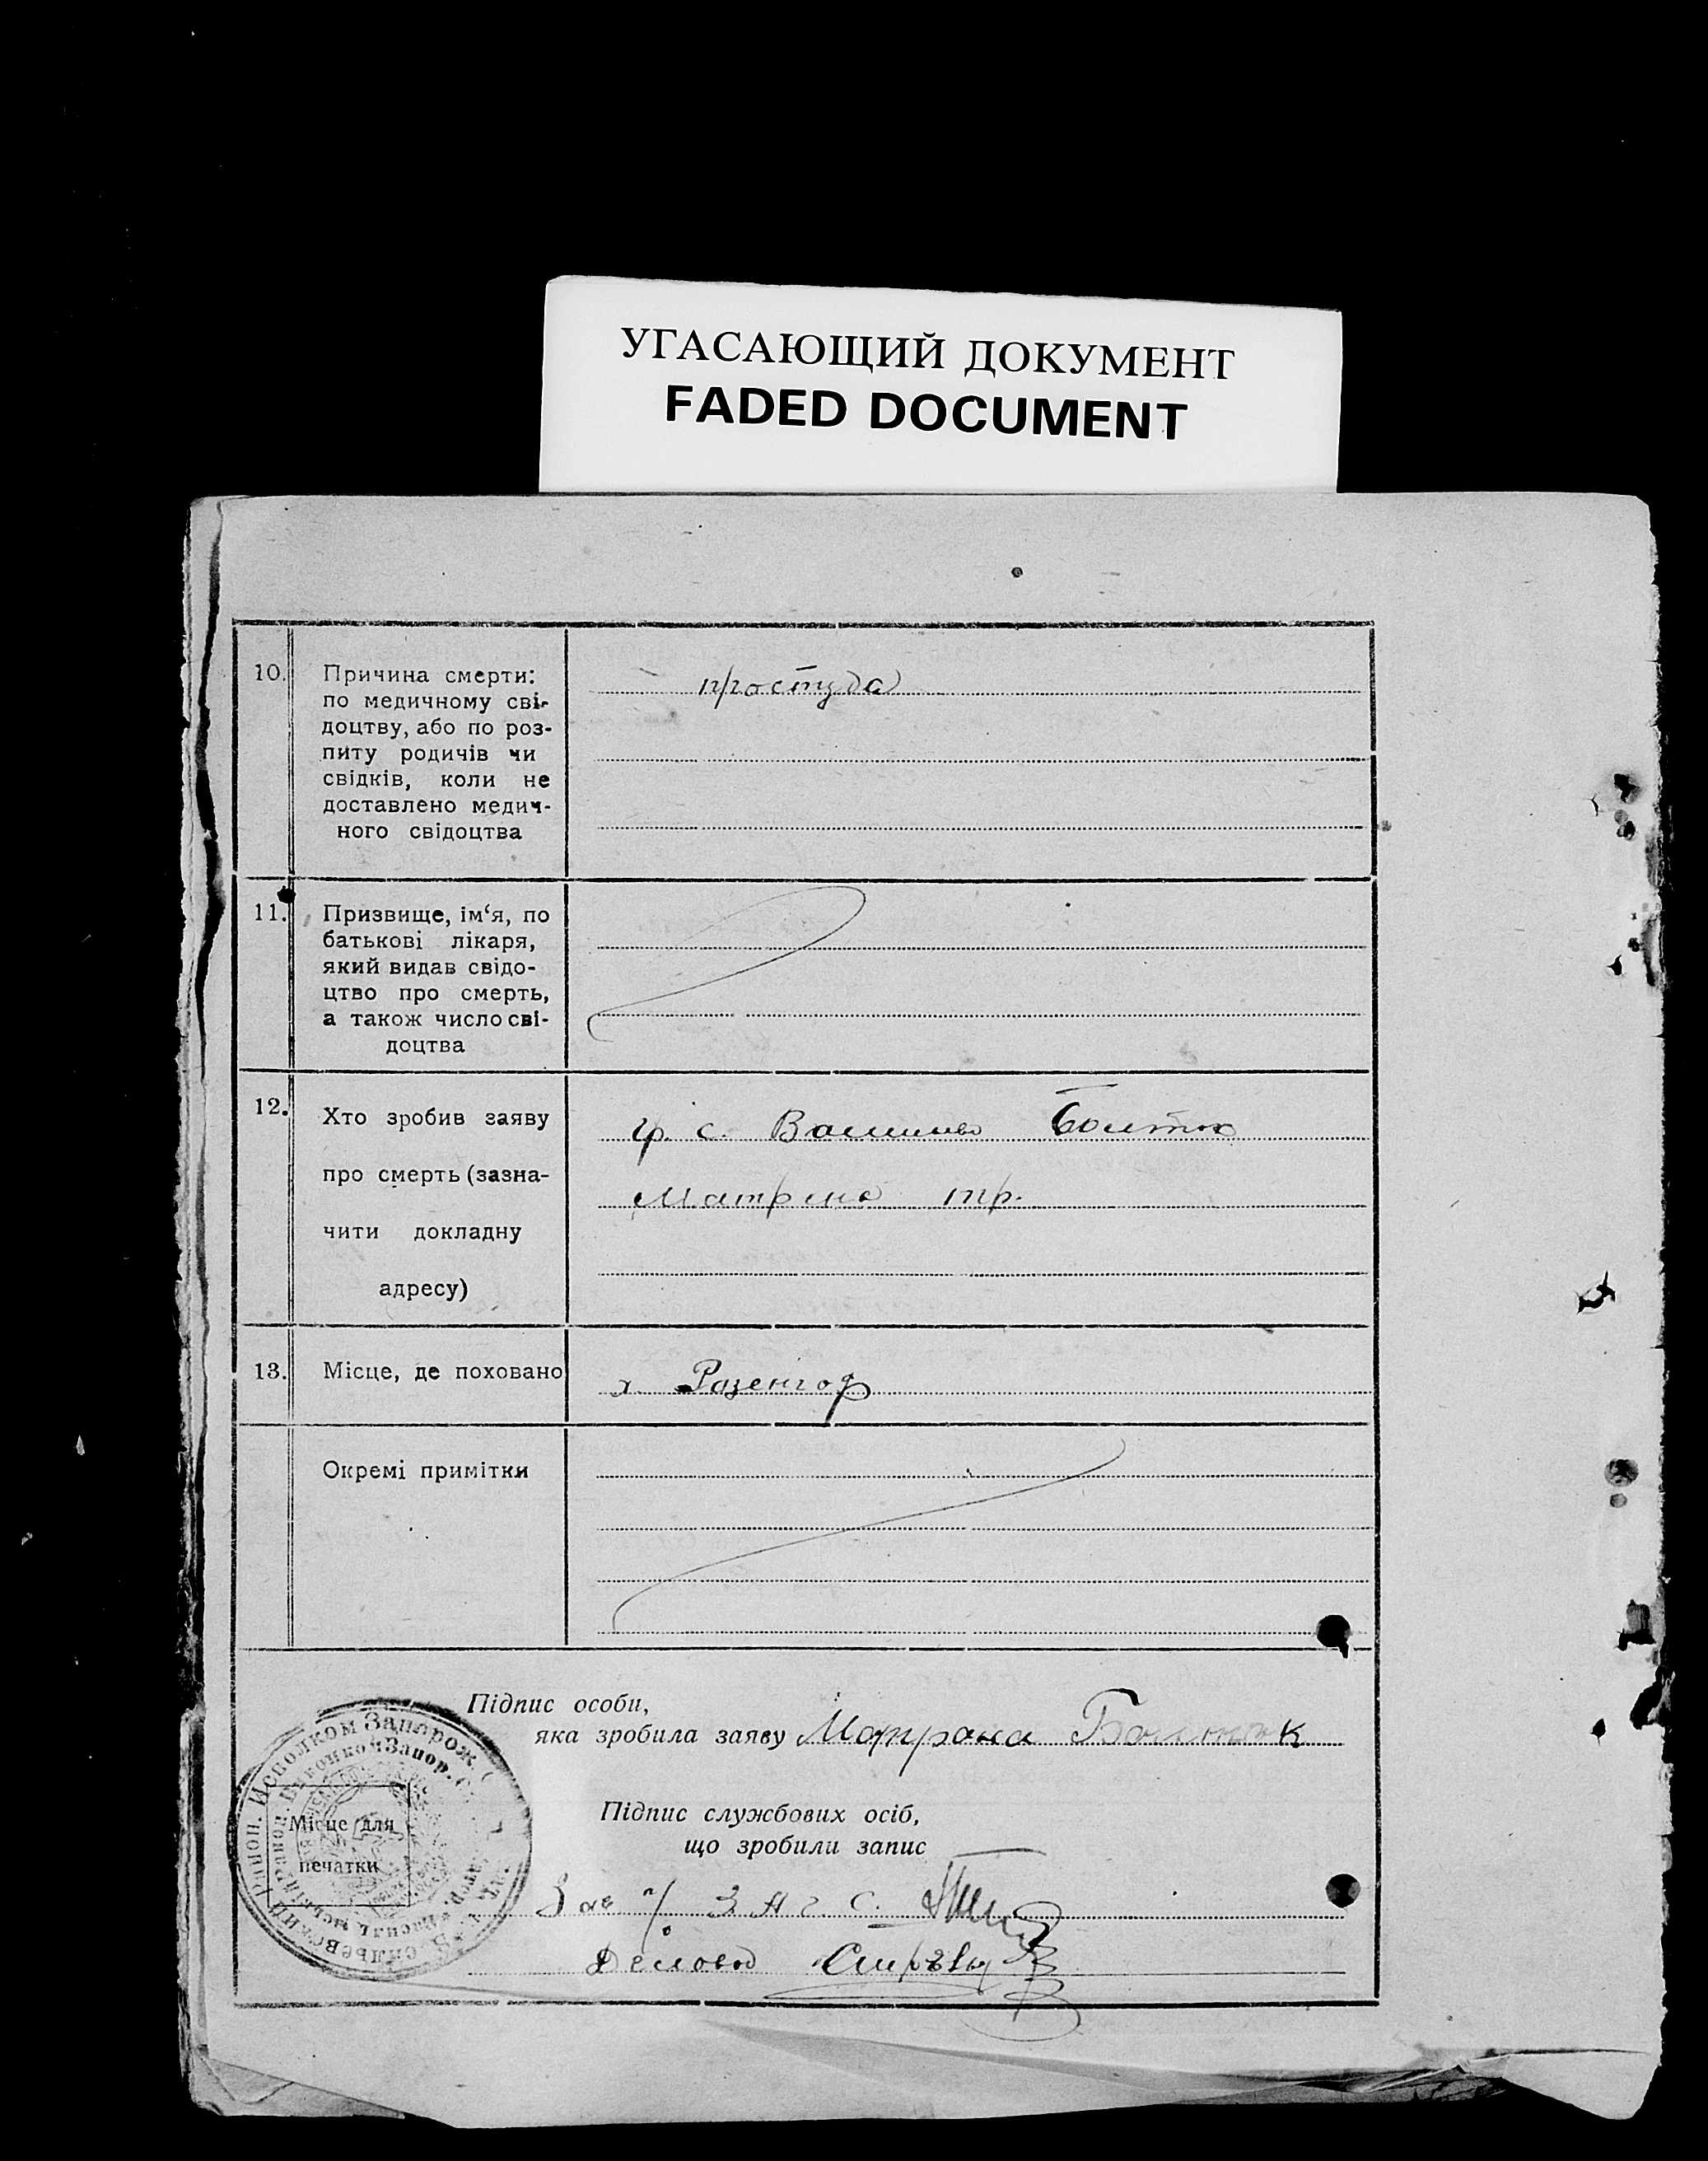 УГАСАЮЩИЙ ДОКУМЕНТ
FADED DOCUMENT
10. Причина смерти:
по медичному сві-
доцтву, або по роз-
питу родичів чи
свідків, коли не
доставлено медич-
ного свідоцтва
простуда
11. Призвище, ім‘я, по
батькові лікаря,
який видав свідо-
цтво про смерть,
а також число сві-
доцтва
12. Хто зробив заяву
про смерть (зазна-
чити докладну
адресу)
гр. с.
Матрина тр.
13. Місце, де поховано
х. Розенгоф
Окремі примітки
Підпис особи,
яка зробила заяву Матрана
Підпис службових осіб,
що зробили запис
Зав ЗАГС
Деловод
Місце для
печатки
Исполком Запорож.